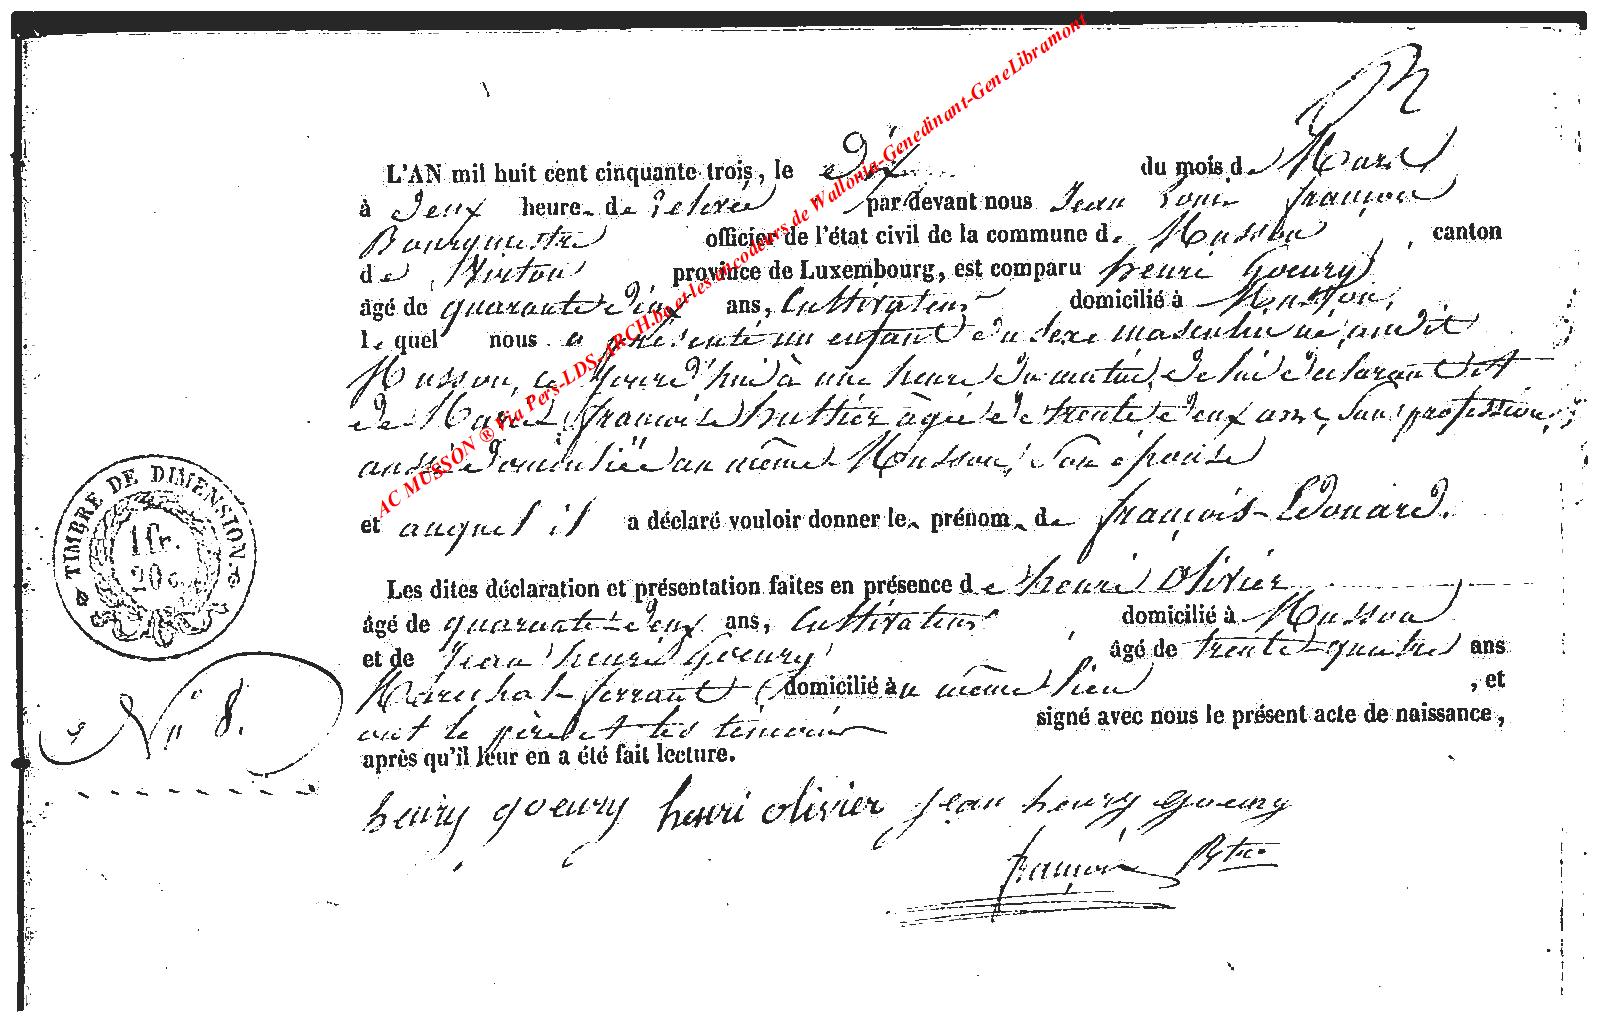 L'AN mil huit cent cinquante trois, le Dix du mois de Mars
à Deux heures de relevée par devant nous Jean Louis françois
Bourgmestre officier de l'état civil de la commune de Musson, canton
de Virton province de Luxembourg, est comparu henri Goeury
âgé de quarante Deux ans, Cultivateur domicilié à Musson,
lequel nous a présenté un enfant du sexe masculin né, audit
Musson, ce jourd'hui à une heure du matin, de lui Déclarant et
de Marie françoise huttier âgée de trente Deux ans, Sans profession,
aussi Domiciliée au même Musson, Son épouse
et auquel il a déclaré vouloir donner les prénoms de françois-Edouard.
Les dites déclaration et présentation faites en présence de henri olivier
âgé de quarante-Deux ans, Cultivateur domicilié à Musson
et de Jean henri Goeury âgé de trente-quatre ans
Maréchal-ferrant domicilié au même lieu, et
ont le père et les témoins signé avec nous le présent acte de naissance,
après qu'il leur en a été fait lecture.
TIMBRE DE DIMENSION.
1 fr.
20 c.
N° 8.
henry goeury henri olivier jean henry goeury
françois Bgtre
AC MUSSON ® Via Pers-LDS-ARCH.be et les encodeurs de Wallonia-Genedinant-GeneLibramont